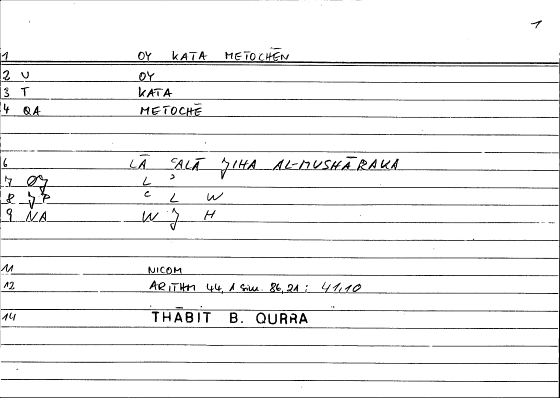 1
1 OY KATA METOCHĒN
2 V OY
3 T KATA
4 QA METOCHĒ
6 LĀ ʿALĀ JIHA AL-MUSHĀRAKA
7 L ʾ
8 ʿ L W
9 NA W J H
11 NICOM
12 ARITHM 44, 1 sim. 86,21 : 41,10
14 THĀBIT B. QURRA